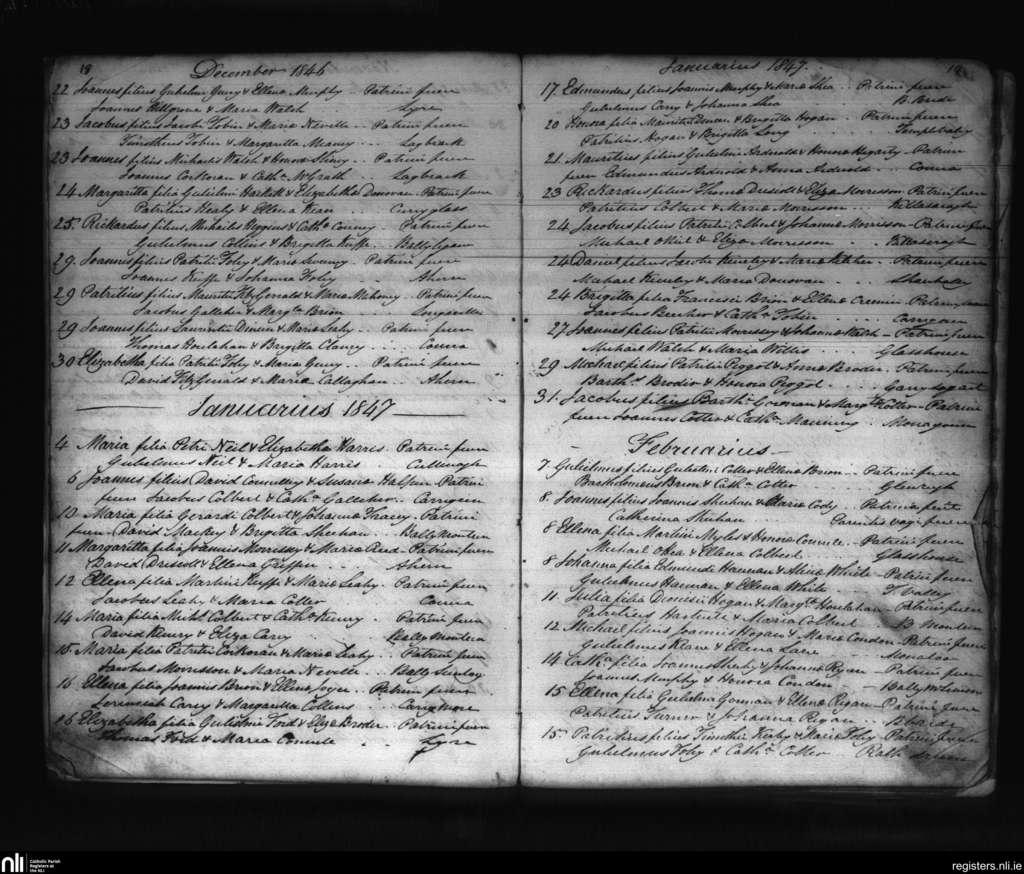 18
December 1846
22 Joannes filius Gulielmi Geary & Ellena Murphy Patrini fuere
Joannes Hillgrove & Maria Walsh Lyre
23 Jacobus filius Jacobi Tobin & Maria Neville Patrini fuere
Timotheus Tobin & Margaritta Meaney Lagbrack
23 Joannes filius Michaelis Walsh & Honora Patrini fuere
Joannes Corkoran & Cath. McGrath Lagbrack
24 Margaritta filia Gulielmi Hartnett & Elizabetha Donovan Patrini fuere
Patritius Healy & Ellena Kean Curryglass
25 Rickardus filius Michaelis Higgins & Cath. Patrini fuere
Gulielmus Collins & Brigetta Keeffe
29 Joannes filius Patritii Foley & Maria Sweeny Patrini fuere
Joannes Keeffe & Johanna Foley Ahern
29 Patritius filius Mauritii FitzGerrald & Maria Mahoney Patrini fuere
Jacobus Galleher & Margtta Brien Longueville
29 Joannes filius Laurentii & Maria Leahy Patrini fuere
Thomas Houlahan & Brigitta Clancy Conna
30 Elizabetha filia Patritii Foley & Maria Geary Patrini fuere
David FitzGerald & Maria Callaghan Ahern
Januarius 1847
4 Maria filia Petri Neil & Elizabetha Harris Patrini fuere
Gulielmus Neil & Maria Harris Cullenagh
6 Joannes filius David & Susana Patrini
fuere Jacobus Colbert & Cath. Galleher Carrigeen
10 Maria filia Gerardi Colbert & Johanna Tracey Patrini
fuere David Mackey & Brigitta Sheehan Ballymonteen
11 Margaritta filia Joannis Morrissey & Maria Reid Patrini fuere
David Driscoll & Ellena Griffin Ahern
12 Ellena filia Martini Keeffe & Maria Leahy Patrini fuere
Jacobus Leahy & Maria Cotter Conna
14 Maria filia Michl Colbert & Cath. Kenry Patrini fuere
David Kenry & Eliza Carey Ballymonteen
15 Maria filia Patritii Corkoran & Maria Leahy Patrini fuere
Jacobus Morrisson & Maria Neville
16 Ellena filia Joannis Brien & Ellena Joyce Patrini fuere
Jeremiah Carey & Margaritta Collins Carrymore
16 Elizabetha filia Gulielmi Ford & Eliza Broder Patrini fuere
Thomas Ford & Maria Lyre
Januarius 1847
19
17 Edmundus filius Joannis Murphy & Maria Shea Patrini fuere
Gulielmus Carey & Johanna Shea B. Barde
20 Honora filia Mauritii & Brigitta Hogan Patrini fuere
Patritius Hogan & Brigitta Long Templevally
21 Mauritius filius Gulielmi Ardnold & Honora Hegarty Patrini
fuere Edmundus Ardnold & Anna Ardnold Conna
23 Rickardus filius Thoma Driscoll & Eliza Morrisson Patrini fuere
Patritius Colbert & Maria Morrisson Killasragh
24 Jacobus filius Patritii Colbert & Johanna Morrisson Patrini fuere
Michael & Eliza Morrisson Killasragh
24 Daniel filius Jacobi & Maria Patrini fuere
Michael & Maria Donovan Shanhaler
24 Brigitta filia Francisci Brien & Ellena Patrini fuere
Jacobus & Cath. Tobin Carrigeen
27 Joannes filius Patritii Morrissey & Johanna Walsh Patrini fuere
Michael Walsh & Maria Willis Glasshouse
29 Michael filius Patritii Piggot & Anna Broder Patrini fuere
Barthw Broder & Honora Piggot Garrydgart
31 Jacobus filius Barthi Gorman & Margtta Cotter Patrini
fuere Joannes Cotter & Cath. Manning Monagown
Februarius
7 Gulielmus filius Gulielmi Cotter & Ellena Brien Patrini fuere
Bartholomeus Brien & Cath. Cotter Glenreigh
8 Joannes filius Joannis Sheehan & Maria Cody Patrina fuit
Catherina Sheehan
8 Ellena filia Martini Myles & Honora Patrini fuere
Michael Okea & Ellena Colbert Glasshouse
8 Johanna filia Edmundi Hannan & Alicia White Patrini fuere
Gulielmus Hannan & Ellena White T. Valley
11 Julia filia Dionisii Hogan & Margtta Houlahan Patrini fuere
Patritius & Maria Colbert B. Monteen
12 Michael filius Joannis Hogan & Maria Condon Patrini fuere
Gulielmus Keane & Ellena Lane Monaloo
14 Cath. filia Joannis Sheehy & Johanna Ryan Patrini fuere
Joannes Murphy & Honora Condon
15 Ellena filia Gulielmi Gorman & Ellena Regan Patrini fuere
Patritius Turner & Johanna Regan B. Barde
15 Patritius filius Timothei Healy & Maria Foley Patrini fuere
Gulielmus Foley & Cath. Cotter Rath
nli
Catholic Parish
Registers at
the NLI
registers.nli.ie